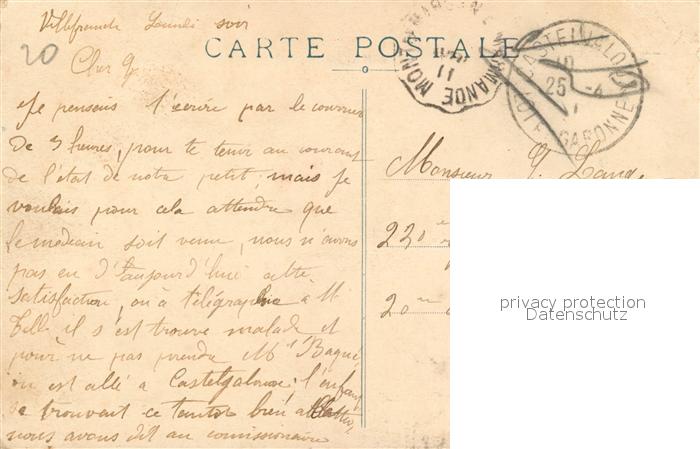 Villefranche Lundi soir
20
CARTE POSTALE
Cher G.
Je pensais t'écrire par le courrier
de 5 heures, pour te tenir au courant
de l'état de notre petit, mais je
voulais pour cela attendre que
le médecin soit venu, nous n'avons
pas eu d'aujourd'hui cette
satisfaction, on a télégraphié à Mr
il s'est trouvé malade et
pour ne pas prendre Mr
on est allé a Castelgaloux; l'enfant
se trouvait ce tantot bien
nous avons dit au comissionaire
CASTELJALOUX
25 -4
LOT & GARONNE
MARMANDE
11
Monsieur G.
220 e
20 me
privacy protection
Datenschutz